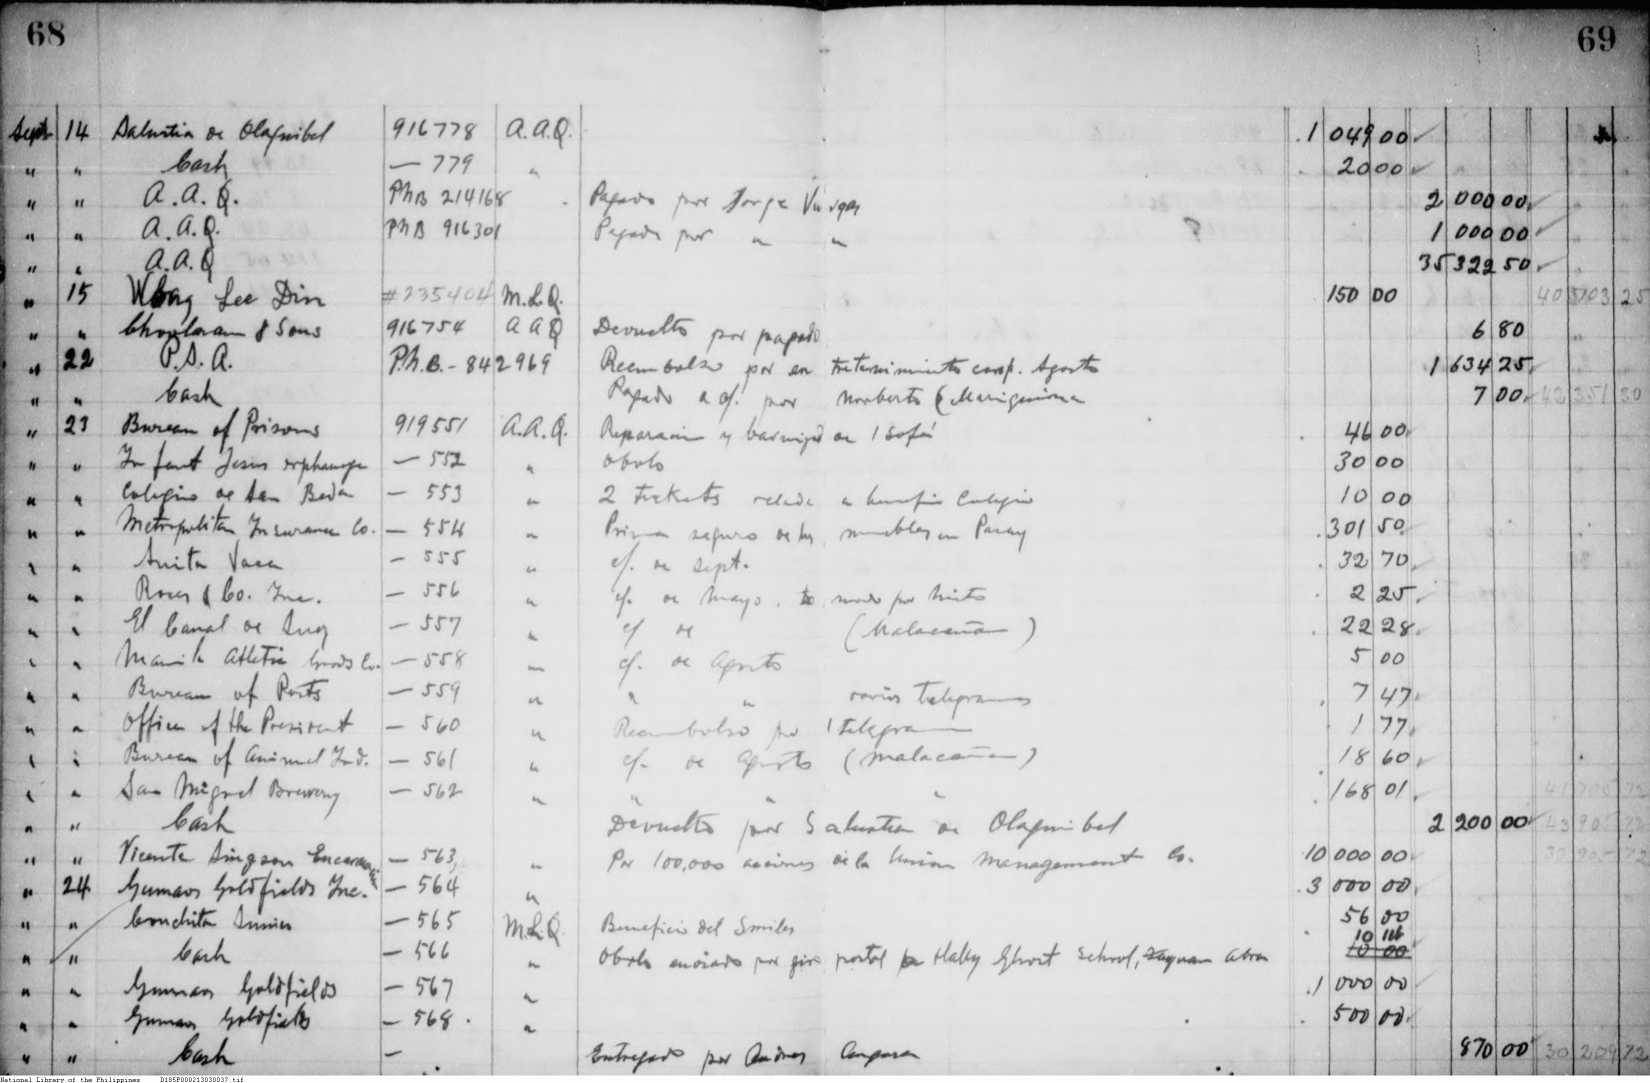 68 69
Sept 14 Salustia de Olaguibel 916778 A.A.Q. 1 049 00
" " Cash — 779 " 20 00
" " A.A.Q. PhB 214168 Pagado por Jorge Vargas 2 000 00
" " A.A.Q. PhB 916301 Pagado por " " 1 000 00
" " A.A.Q 35 322 50
" 15 Wong Lee Din #235404 M.L.Q. 150 00 40 5103 25
" " & Sons 916754 A A Q Devuelto por pagado 6 80
" 22 P.S.A. Ph.B.- 842969 Reembolso por en Agosto 1 634 25
" " Cash Pagado a cf. por Norberto 7 00 42 351 30
" 23 Bureau of Prisons 919551 A.A.Q. Reparacion y de 1 sofá 46 00
" " Infant Jesus orphanage — 552 " Obolo 30 00
" " Colegio de San Beda — 553 " 2 Tickets a beneficio Colegio 10 00
" " Metropolitan Insurance Co. — 554 " Prima seguro de los muebles en Pasay 301 50
" " Anita — 555 " cf. de Sept. 32 70
" " Roces & Co. Inc. — 556 " cf. de Mayo. por 2 25
" " El Canal de Suez — 557 " cf de (Malacañan) 22 28
" " Manila Athletic Goods Co. — 558 " cf. de Agosto 5 00
" " Bureau of Posts — 559 " " " varios telegramas 7 47
" " Office of the President — 560 " Reembolso por 1 telegrama 1 77
" " Bureau of Animal Ind. — 561 " cf. de Agosto (Malacañan) 18 60
" " San Miguel Brewery — 562 " " " " 168 01
" " Cash Devuelto por Salustia de Olaguibel 2 200 00
" " Vicente Singson Encarnacion — 563 " Por 100,000 acciones de la Union Management Co. 10 000 00
" 24 Gumaos Goldfields Inc. — 564 " 3 000 00
" " Conchita Sunico — 565 M.L.Q. Beneficio del Smiles 56 00
" " Cash — 566 " Obolo enviado por giro postal Holy Ghost School, Abra 10 16 10 00
" " Gumaos Goldfields — 567 " 1 000 00
" " Gumaos Goldfields — 568 " 500 00
" " Cash — Entregado por 870 00 30 209 72
National Library of the Philippines D185P000213030037.tif